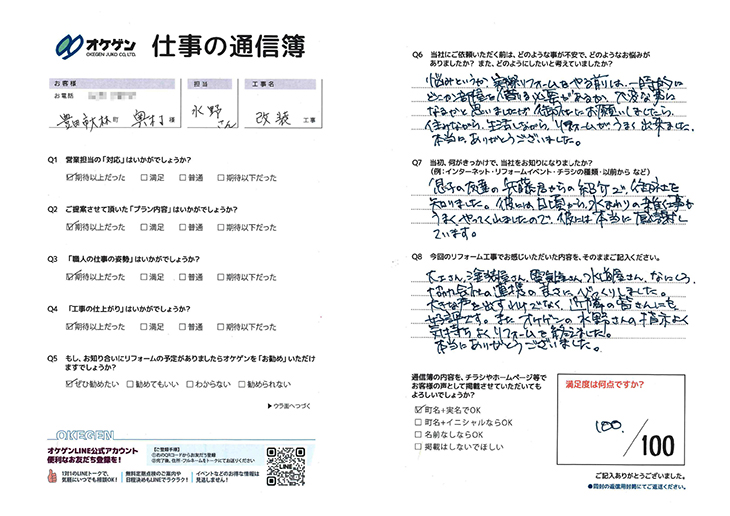 オケゲン
OKEGEN JUKO CO.,LTD.
仕事の通信簿
お客様
お電話
町 奥村 様
担当
水野さん
工事名
改装 工事
Q1 営業担当の「対応」はいかがでしょうか?
☑期待以上だった □満足 □普通 □期待以下だった
Q2 ご提案させて頂いた「プラン内容」はいかがでしょうか?
☑期待以上だった □満足 □普通 □期待以下だった
Q3 「職人の仕事の姿勢」はいかがでしょうか?
☑期待以上だった □満足 □普通 □期待以下だった
Q4 「工事の仕上がり」はいかがでしょうか?
☑期待以上だった □満足 □普通 □期待以下だった
Q5 もし、お知り合いにリフォームの予定がありましたらオケゲンを「お勧め」いただけ
ますでしょうか?
☑ぜひ勧めたい □勧めてもいい □わからない □勧められない
▶ウラ面へつづく
OKEGEN
オケゲンLINE公式アカウント
便利なお友だち登録を!
【ご登録手順】
①右のQRコードからお友だち登録
②完了後、住所・フルネームをトークにてお送りください
1対1のLINEトークで、
気軽にいつでも相談OK!
無料定期点検のご案内や
日程決めもLINEでラクラク!
イベントなどのお得な情報は
見逃しません!
LINE
Q6 当社にご依頼いただく前は、どのような事が不安で、どのようなお悩みが
ありましたか? また、どのようにしたいと考えていましたか?
悩みというか実際リフォームをやる前は、一時的に
どこか部屋を借りる必要があるか、大変な事に
なるかと思いましたが御社にお願いしましたら、
住みながら、生活しながら、リフォームが、うまく出来ました。
本当にありがとうございました。
Q7 当初、何がきっかけで、当社をお知りになりましたか?
(例:インターネット・リフォームイベント・チラシの種類・以前から など)
息子の友達の 君からの紹介で、御社を
知りました。彼には日頃から、水まわりの 工事を
うまくやってくれましたので、彼には本当に感謝し
ています。
Q8 今回のリフォーム工事でお感じいただいた内容を、そのままご記入ください。
大工さん、塗装屋さん、電気屋さん、水道屋さん、なにしろ
協力会社の連携の良さに、びっくりしました。
大きな声を出すわけでなく、近隣の皆さんにも
好評です。また オケゲンの水野さんの 良く
気持ちよくリフォームを終えました。
本当にありがとうございました。
通信簿の内容を、チラシやホームページ等で
お客様の声として掲載させていただいても
よろしいでしょうか?
☑町名+実名でOK
□町名+イニシャルならOK
□名前なしならOK
□掲載はしないでほしい
満足度は何点ですか?
100/100
ご記入ありがとうございました。
●同封の返信用封筒にてご返送ください。